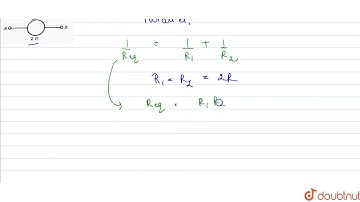 A B
2R
1/Req = 1/R1 + 1/R2
R1 = R2 = 2R
Req = R1 R2
doubtnut